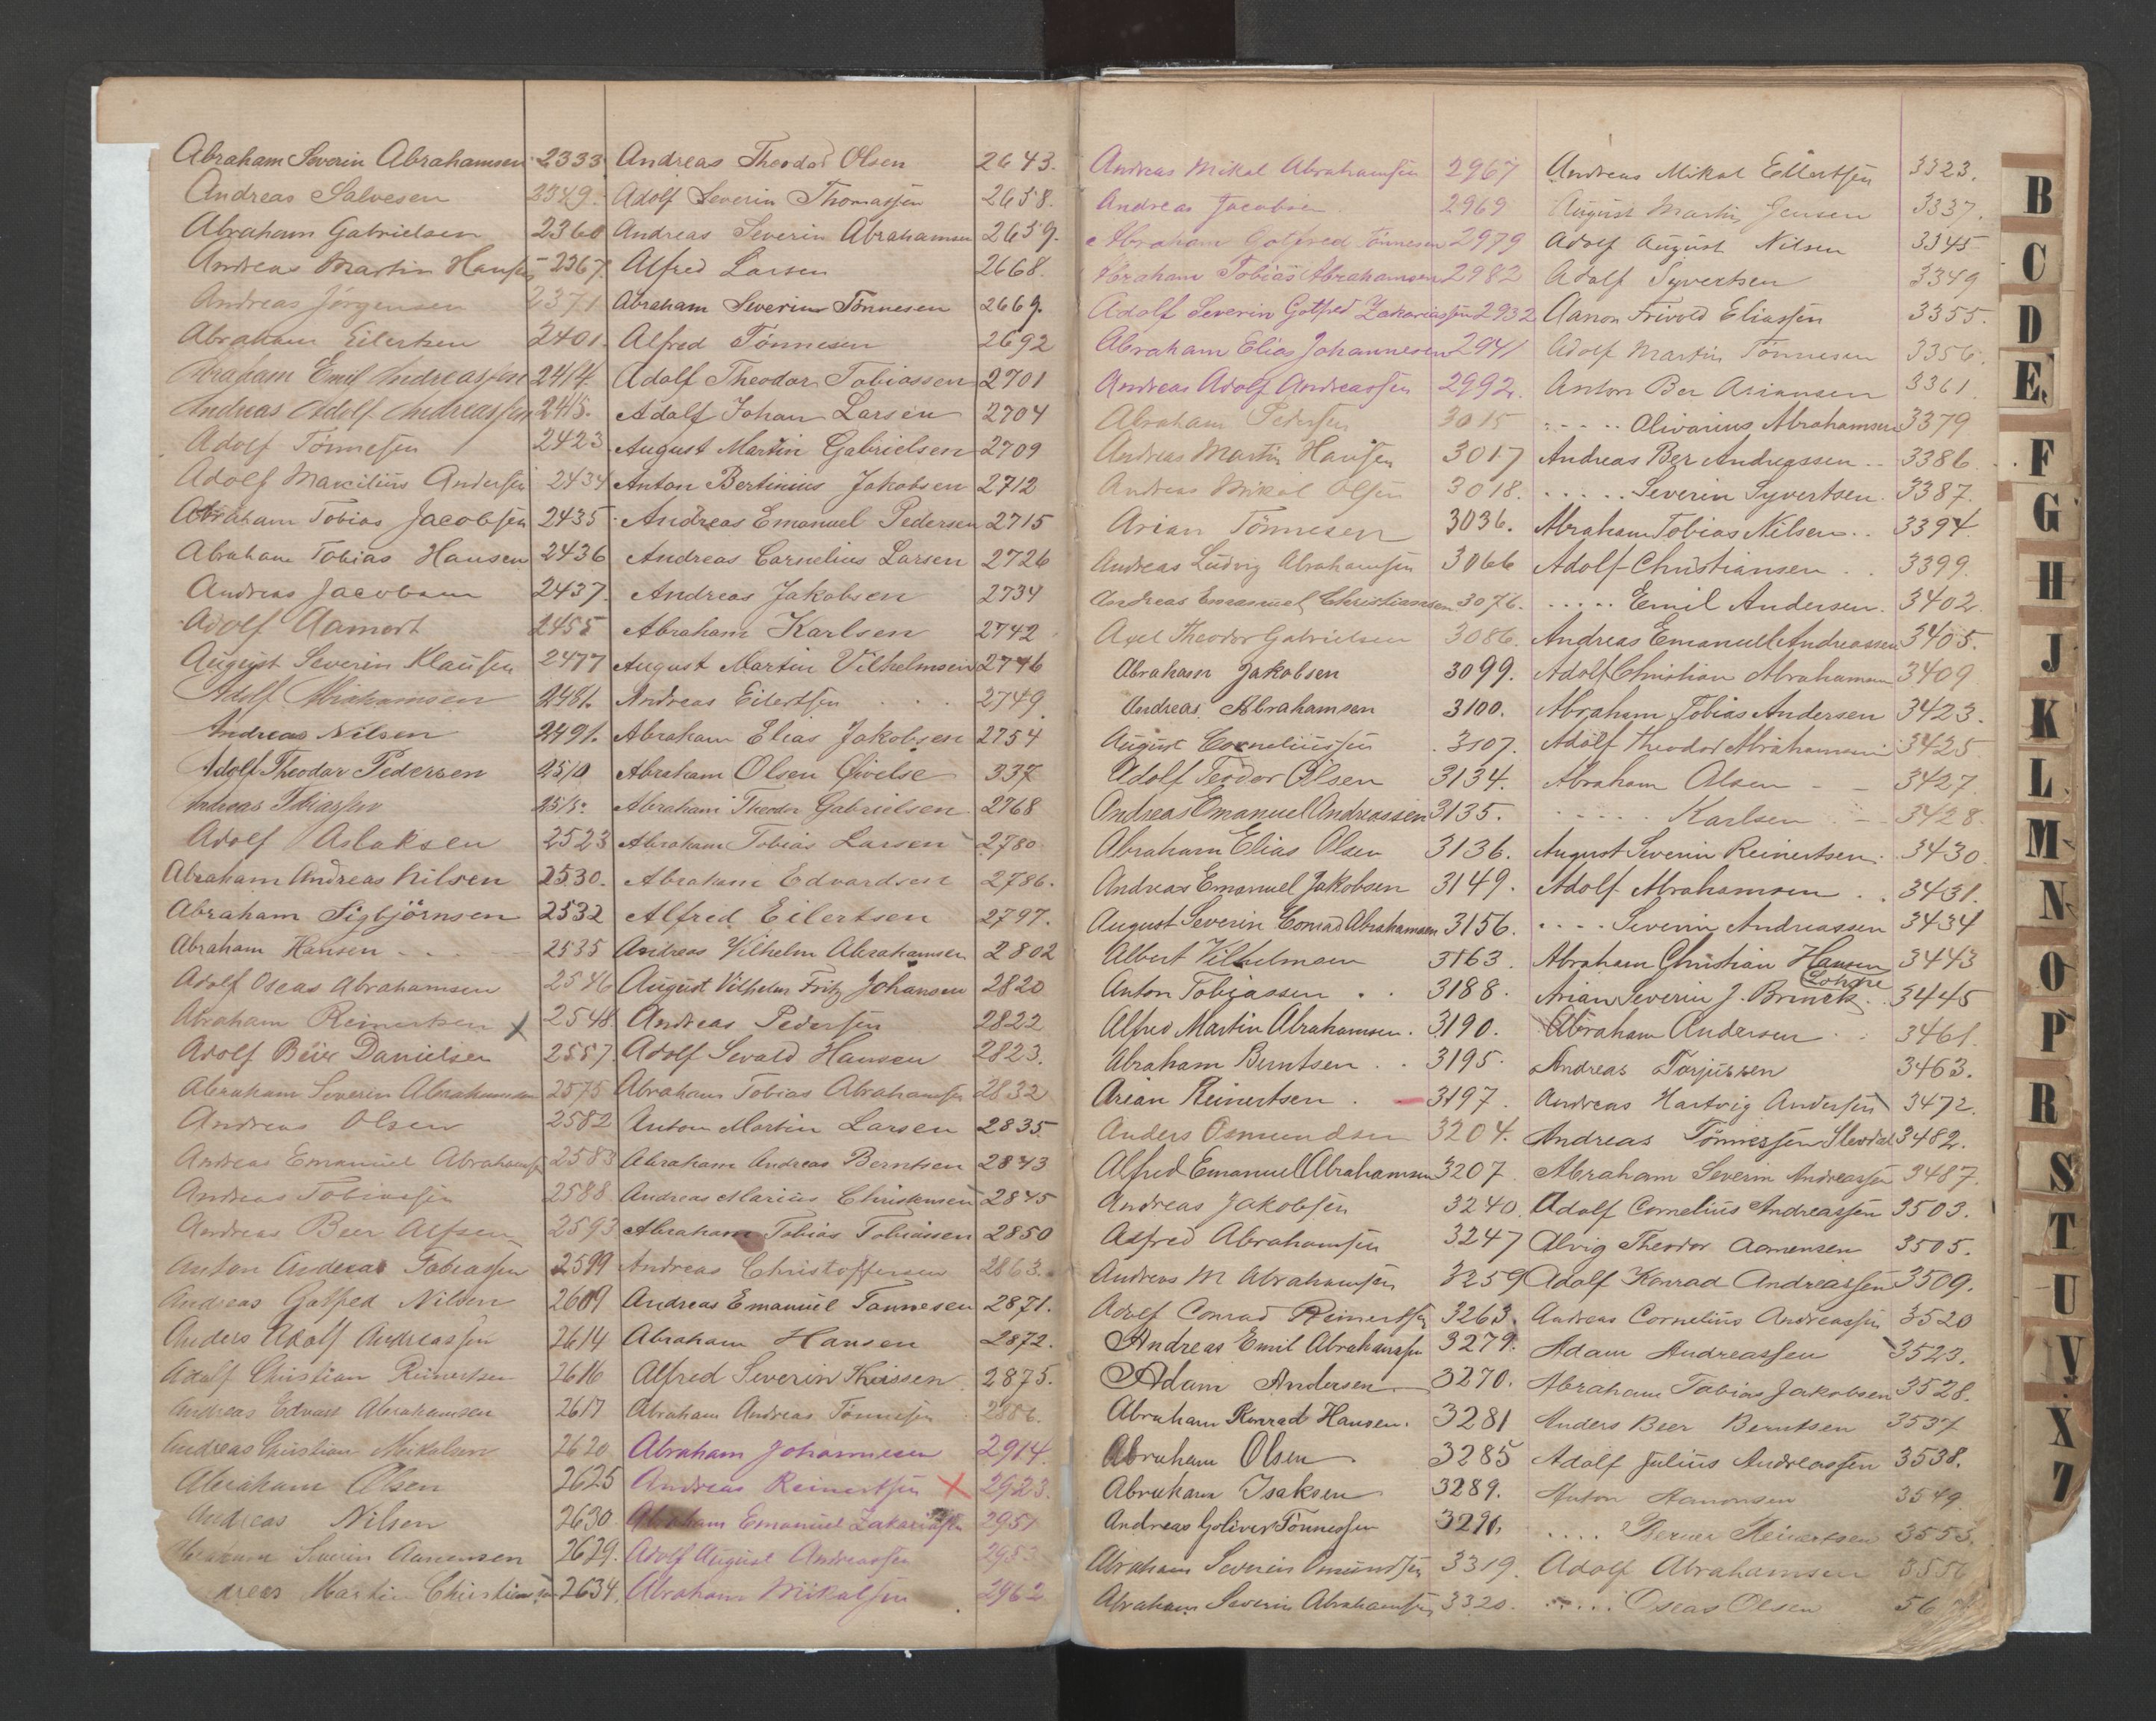 Abraham Severin Abrahamsen 2333
Andreas Salvesen 2349.
Abraham Gabrielsen 2360
Andreas Martin Hansen 2367
Andreas Jörgensen 2371
Abraham Eilertsen 2401.
Abraham Emil Andreassen 2414.
Andreas Adolf Andreassen 2415.
Adolf Tönnesen 2423
Adolf Marcilius Andersen 2434
Abraham Tobias Jacobsen 2435
Abraham Tobias Hansen 2436
Andreas Jacobsen 2437.
Adolf Aamodt 2455
August Severin Klausen 2477
Adolf Abrahamsen 2481.
Andreas Nilsen 2491.
Adolf Theodor Pedersen 2510
Andreas Tobiassen 2515.
Adolf Aslaksen 2523
Abraham Andreas Nilsen 2530.
Abraham Sigbjörnsen 2532
Abraham Hansen 2535
Adolf Oseas Abrahamsen 2546
Abraham Reinertsen X 2548
Adolf Beer Danielsen 2557.
Abraham Severin Abrahamsen 2575
Andreas Olsen 2582
Andreas Emanuel Abrahamsen 2583
Andreas Tobiassen 2588
Andreas Beer Alfsen 2593
Anton Andreas Tobiassen 2599
Andreas Gotfred Nilsen 2609
Anders Adolf Andreassen 2614
Adolf Christian Reinertsen 2616
Andreas Edvart Abrahamsen 2617
Andreas Christian Mikalsen 2620
Abraham Olsen 2625
Andreas Nilsen 2630.
Abraham Severin Aanensen 2629.
dreas Martin Christiansen 2634.
Andreas Theodor Olsen 2643.
Adolf Severin Thomassen 2658.
Andreas Severin Abrahamsen 2659.
Alfred Larsen 2668.
Abraham Severin Tönnesen 2669.
Alfred Tönnesen 2692
Adolf Theodor Tobiassen 2701
Adolf Johan Larsen 2704
August Martin Gabrielsen 2709
Anton Bertinius Jakobsen 2712
Andreas Emanuel Pedersen 2715
Andreas Cornelius Larsen 2726
Andreas Jakobsen 2734
Abraham Karlsen 2742
August Martin Vilhelmsen 2746
Andreas Eilertsen 2749
Abraham Elias Jakobsen 2754
Abraham Olsen 337
Abraham Theodor Gabrielsen 2768
Abraham Tobias Larsen 2780
Abraham Edvardsen 2786.
Alfred Eilertsen 2797.
Andreas Vilhelm Abrahamsen 2802
August Vilhelm Fritz Johansen 2820
Andreas Pedersen 2822
Adolf Sevald Hansen 2823.
Abraham Tobias Abrahamsen 2832
Anton Martin Larsen 2835
Abraham Andreas Berntsen 2843
Andreas Marius Christensen 2845
Abraham Tobias Tobiassen 2850
Andreas Christoffersen 2863.
Andreas Emanuel Tönnesen 2871.
Abraham Hansen 2872.
Alfred Severin Theissen 2875.
Abraham Andreas Tönnesen 2886.
Abraham Johannesen 2914.
Andreas Reinertsen X 2923.
Abraham Emanuel Zakariassen 2951
Adolf August Andreassen 295
Abraham Mikalsen 2962
Andreas Mikal Abrahamsen 2967
Andreas Jacobsen 2969
Abraham Gotfred Tönnesen 2979
Abraham Tobias Abrahamsen 2982
Adolf Severin Gotfred Zakariassen 2932
Abraham Elias Johannesen 2941
Andreas Adolf Andreassen 2992.
Abraham Pedersen 3015
Andreas Martin Hansen 3017
Andreas Mikal Olsen 3018.
Arian Tönnesen 3036.
Andreas Ludvig Abrahamsen 3066
Andreas Emanuel Christiansen 3076.
Axel Theodor Gabrielsen 3086.
Abraham Jakobsen 3099.
Andreas Abrahamsen 3100.
August Corneliussen 3107.
Adolf Teodor Olsen 3134.
Andreas Emanuel Andreassen 3135.
Abraham Elias Olsen 3136.
Andreas Emanuel Jakobsen 3149.
August Severin Conrad Abrahamsen 3156.
Albert Vilhelmsen 3163.
Anton Tobiassen 3188.
Alfred Martin Abrahamsen. 3190.
Abraham Berntsen 3195.
Arian Reinertsen 3197.
Anders Osmundsen 3204.
Alfred Emanuel Abrahamsen 3207
Andreas Jakobsen 3240.
Alfred Abrahamsen 3247
Andreas M Abrahamsen 3259
Adolf Conrad Reinertsen 3263.
Andreas Emil Abrahamsen 3279.
Adam Andersen 3270.
Abraham Konrad Hansen. 3281
Abraham Olsen 3285
Abraham Isaksen 3289.
Andreas Goliver Tönnessen 3291.
Abraham Severin Omundsen 3319.
Abraham Severin Abrahamsen 3320.
Andreas Mikal Eilertsen 3323.
August Martin Jensen 3337.
Adolf August Nilsen 3345
Adolf Syvertsen 3349
Aanon Frivold Eliassen 3355.
Adolf Martin Tönnesen 3356.
Anton Ber Asiansen 3361
" Olivarius Abrahamsen 3379
Andreas Ber Andreassen 3386
" Severin Syvertsen. 3387.
Abraham Tobias Nilsen 3394.
Adolf Christiansen 3399.
" Emil Andersen. 3402.
Andreas Emanuel Andreassen 3405.
Adolf Christian Abrahamsen 3409
Abraham Tobias Andersen 3423.
Adolf Theodor Abrahamsen 3425
Abraham Olsen 3427.
" Karlsen 3428
August Severin Reinertsen. 3430
Adolf Abrahamsen 3431.
" Severin Andreassen 3434
Abraham Christian Hansen 3443
Arian Severin J. Brinck 3445
Abraham Andersen 3461.
Andreas Torjussen 3463.
Andreas Hartvig Andersen 3472.
Andreas Tönnessen 3482.
Abraham Severin Andreassen 3487.
Adolf Cornelius Andreassen 3503.
Alvig Theodor Aanensen 3505.
Adolf Konrad Andreassen 3509.
Andreas Cornelius Andreassen 3520
Adam Andreassen 3523.
Abraham Tobias Jakobsen 3528.
Anders Beer Berntsen 3537
Adolf Julius Andreassen 3538.
Anton Aanonsen 3549
" Berner Reinertsen 3553.
Adolf Abrahamsen 3556
" Oseas Olsen 56
B
C
D
E
F
G
H
J
K
L
M
N
O
P
R
S
T
U
V
X
Z